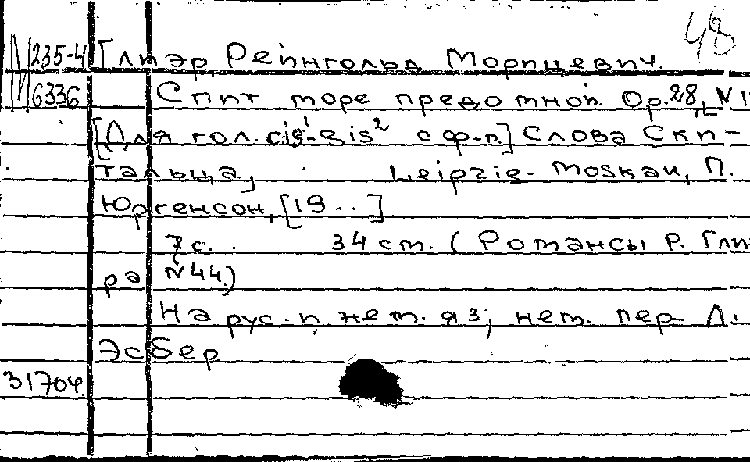 48
М235-4 Глиэр, Рейнгольд Морицевич.
6336 Спит море предо мной. Op. 28, N 1
[Для гол. cis¹-gis² с ф-п.] Слова Ски-
тальца, Leipzig- Moskau, П.
Юргенсон, [19..]
7 с. 34 см. (Романсы Р. Глиэ
ра N 44.)
На рус. и нем. яз; нем. пер Л.
Эсбер
31704